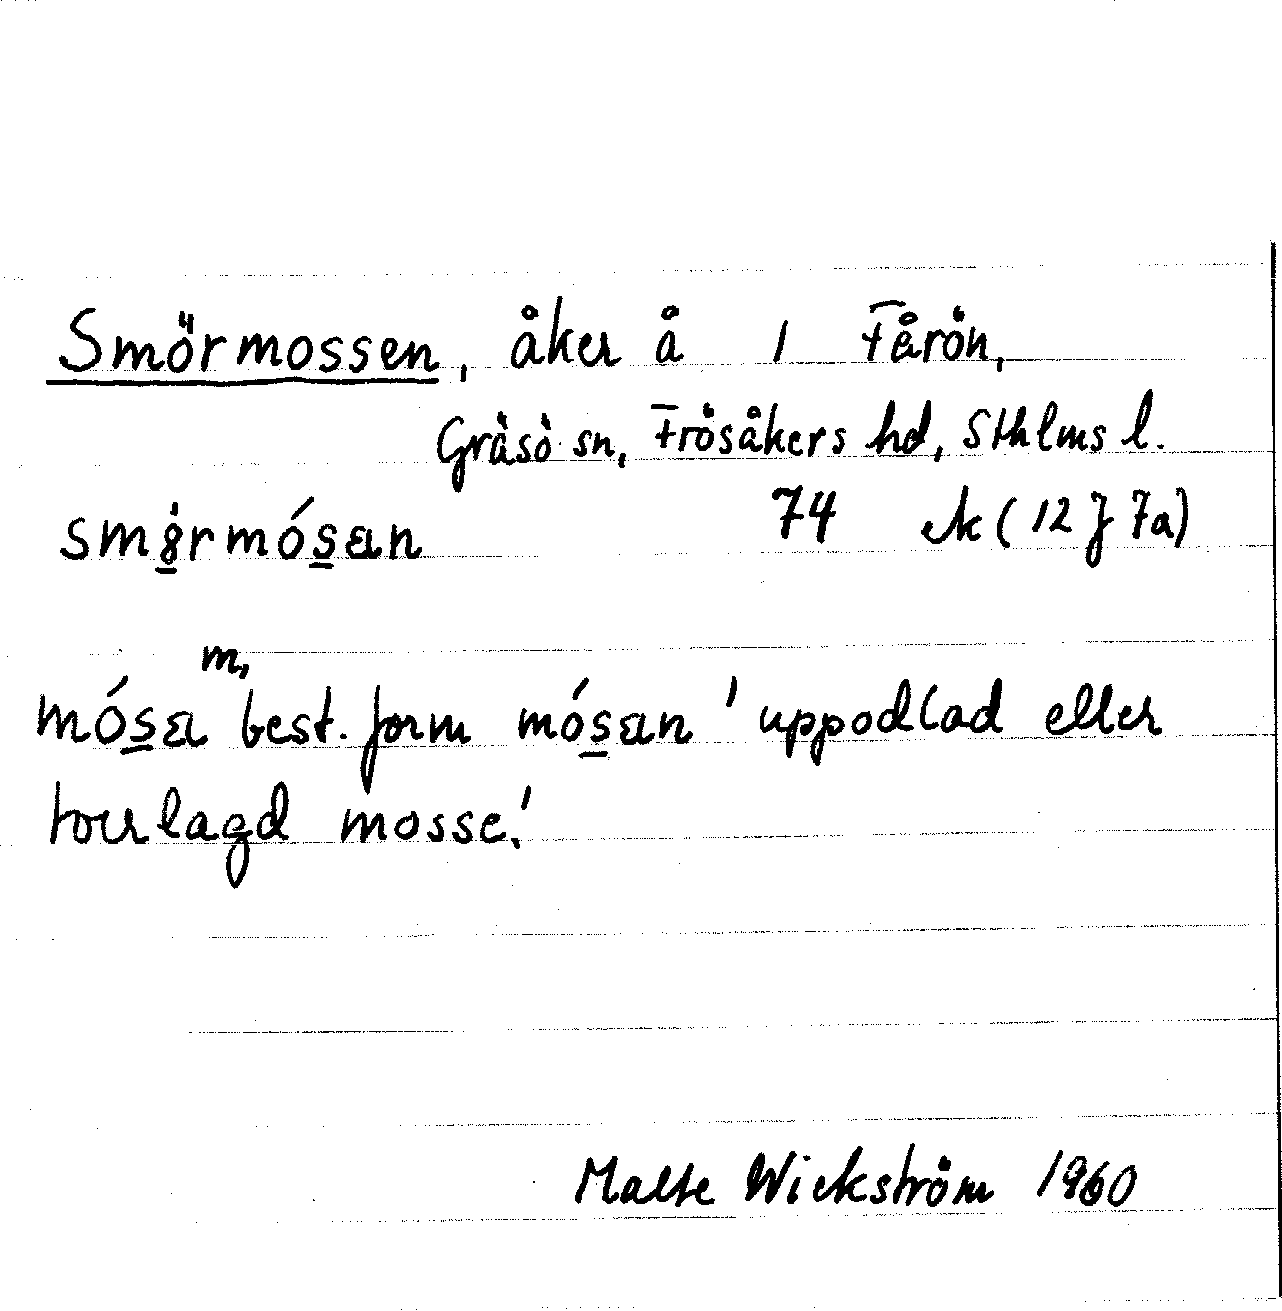 Smörmossen, åker å 1 Fårön,
Gräsö sn, Frösåkers hd, Sthlms l.
smö̱rmós̱an 74 ek (12 J 7a)
m,
mós̱a best. form mós̱an 'uppodlad eller
torrlagd mosse.'
Malte Wickström 1960